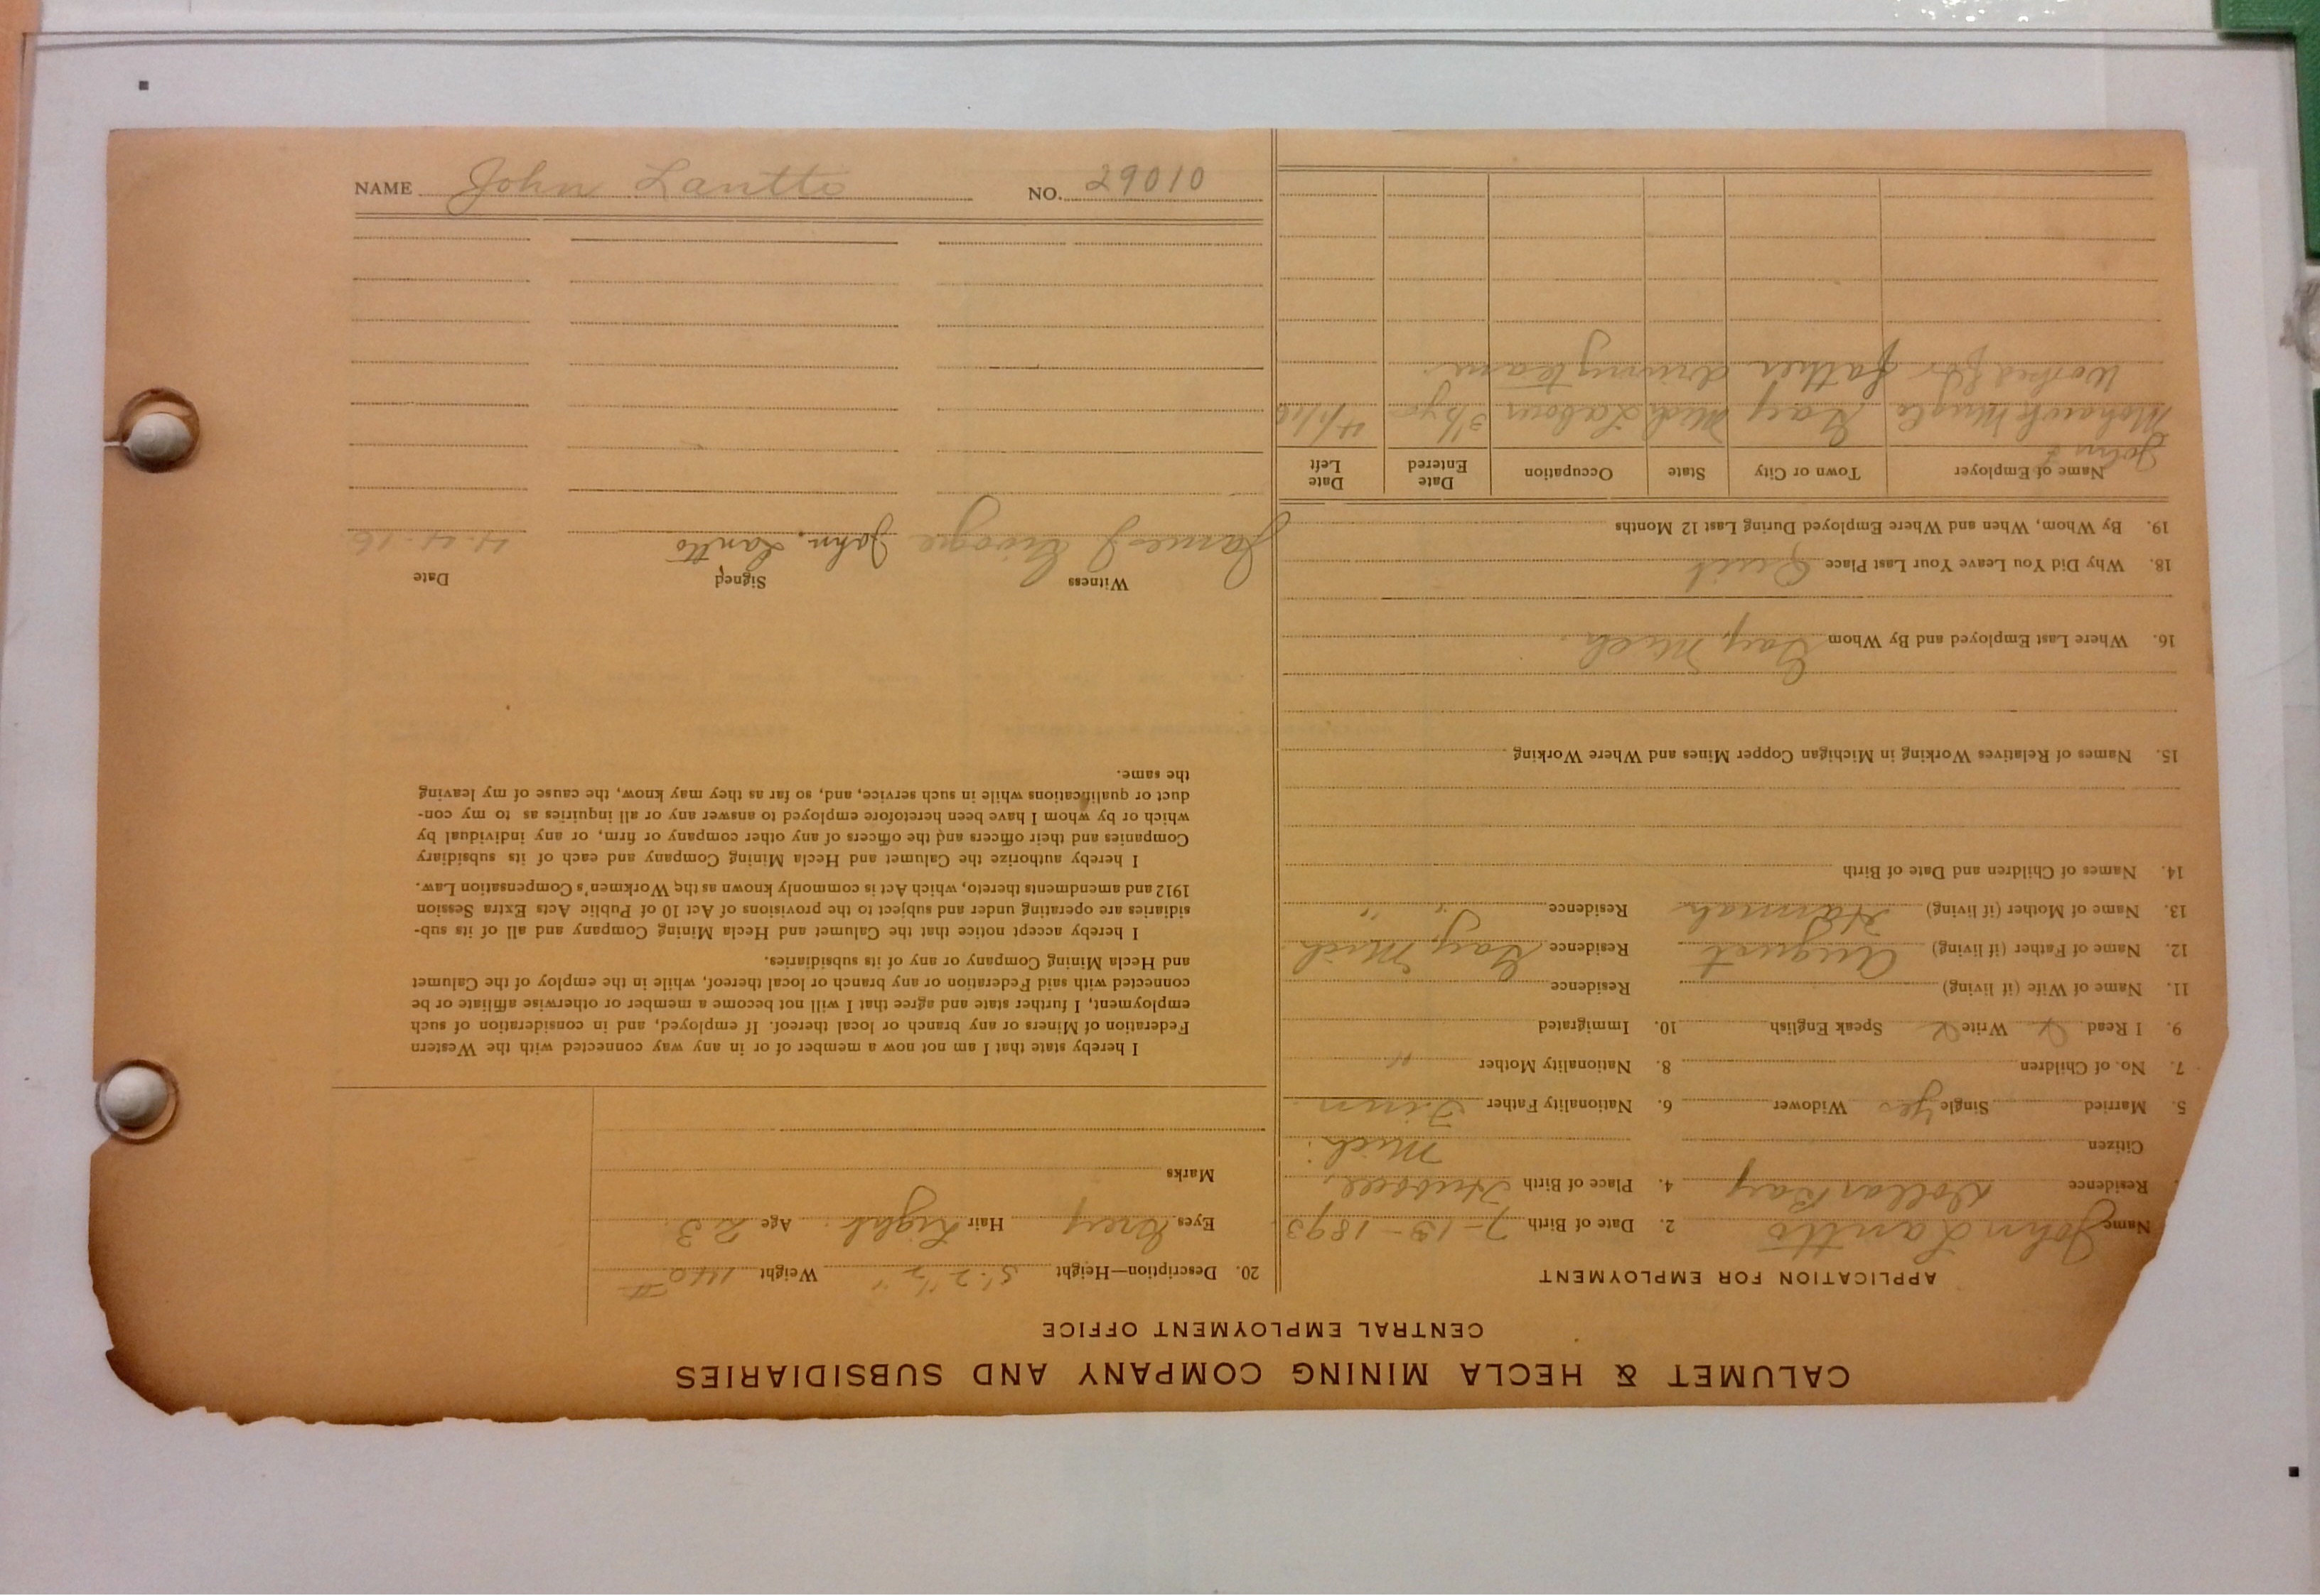 CALUMET & HECLA MINING COMPANY AND SUBSIDIARIES
CENTRAL EMPLOYMENT OFFICE
APPLICATION FOR EMPLOYMENT
Name John Lantto 2. Date of Birth 7-13-1893
Residence Dollar Bay 4. Place of Birth Hubbell,
Citizen Mich.
5. Married Single Yes Widower 6. Nationality Father Finn
7. No. of Children 8. Nationality Mother "
9. I Read Write Speak English 10. Immigrated
11. Name of Wife (if living) Residence
12. Name of Father (if living) August Residence Gay Mich
13. Name of Mother (if living) Hannah Residence " "
14. Names of Children and Date of Birth
15. Names of Relatives Working in Michigan Copper Mines and Where Working
16. Where Last Employed and By Whom Gay, Mich.
18. Why Did You Leave Your Last Place Quit
19. By Whom, When and Where Employed During Last 12 Months
Name of Employer Town or City State Occupation Date Entered Date Left
Mohawk Gay Mich Labour 4/1/16
Worked for father driving team.
20. Description—Height 5'. 2 1/2" Weight 140 #
Eyes Grey Hair Light. Age 23.
Marks
I hereby state that I am not now a member of or in any way connected with the Western
Federation of Miners or any branch or local thereof. If employed, and in consideration of such
employment, I further state and agree that I will not become a member or otherwise affiliate or be
connected with said Federation or any branch or local thereof, while in the employ of the Calumet
and Hecla Mining Company or any of its subsidiaries.
I hereby accept notice that the Calumet and Hecla Mining Company and all of its sub-
sidiaries are operating under and subject to the provisions of Act 10 of Public Acts Extra Session
1912 and amendments thereto, which Act is commonly known as the Workmen's Compensation Law.
I hereby authorize the Calumet and Hecla Mining Company and each of its subsidiary
Companies and their officers and the officers of any other company or firm, or any individual by
which or by whom I have been heretofore employed to answer any or all inquiries as to my con-
duct or qualifications while in such service, and, so far as they may know, the cause of my leaving
the same.
Witness Signed Date
James J John. Lantto 4-4-16
NAME John Lantto NO. 29010